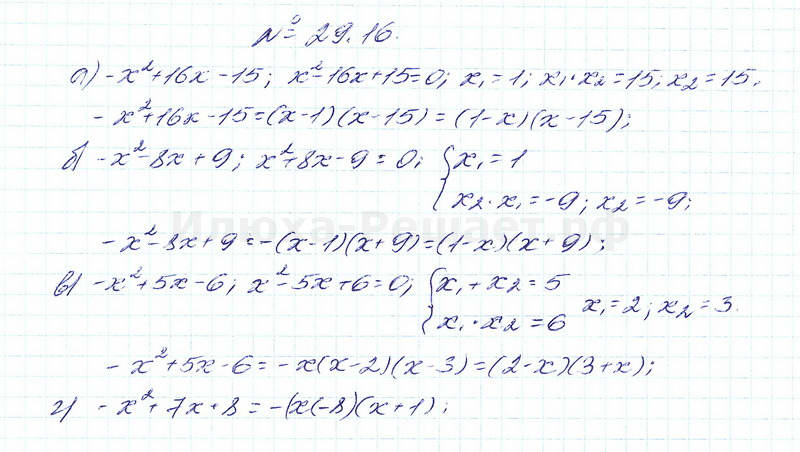 № 29.16.
а) -x²+16x-15; x²-16x+15=0; x₁=1; x₁·x₂=15; x₂=15.
- x²+16x-15=(x-1)(x-15)=(1-x)(x-15);
б) -x²-8x+9; x²+8x-9=0; { x₁=1
x₂·x₁=-9; x₂=-9;
Илюха-Решает.рф
- x²-8x+9=-(x-1)(x+9)=(1-x)(x+9);
в) -x²+5x-6; x²-5x+6=0; { x₁+x₂=5
x₁·x₂=6 x₁=2; x₂=3.
- x²+5x-6=-x(x-2)(x-3)=(2-x)(3+x);
г) -x²+7x+8=-(x(-8)(x+1);